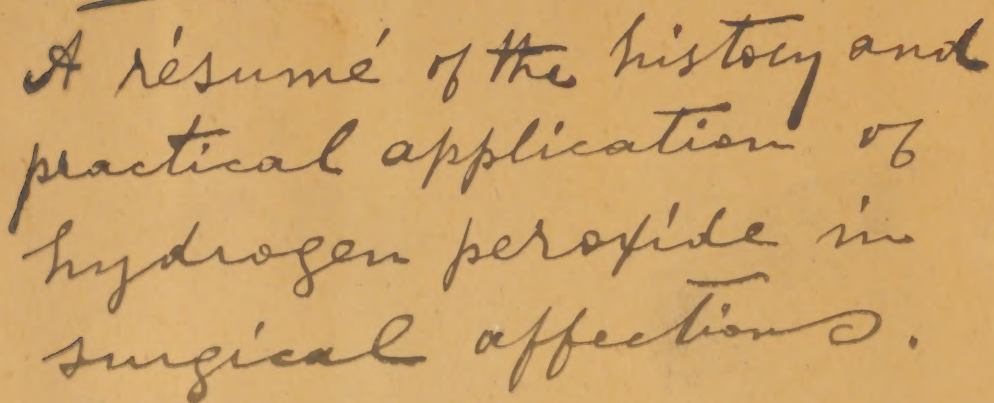 A résumé of the history and
practical application of
hydrogen peroxide in
surgical affections.